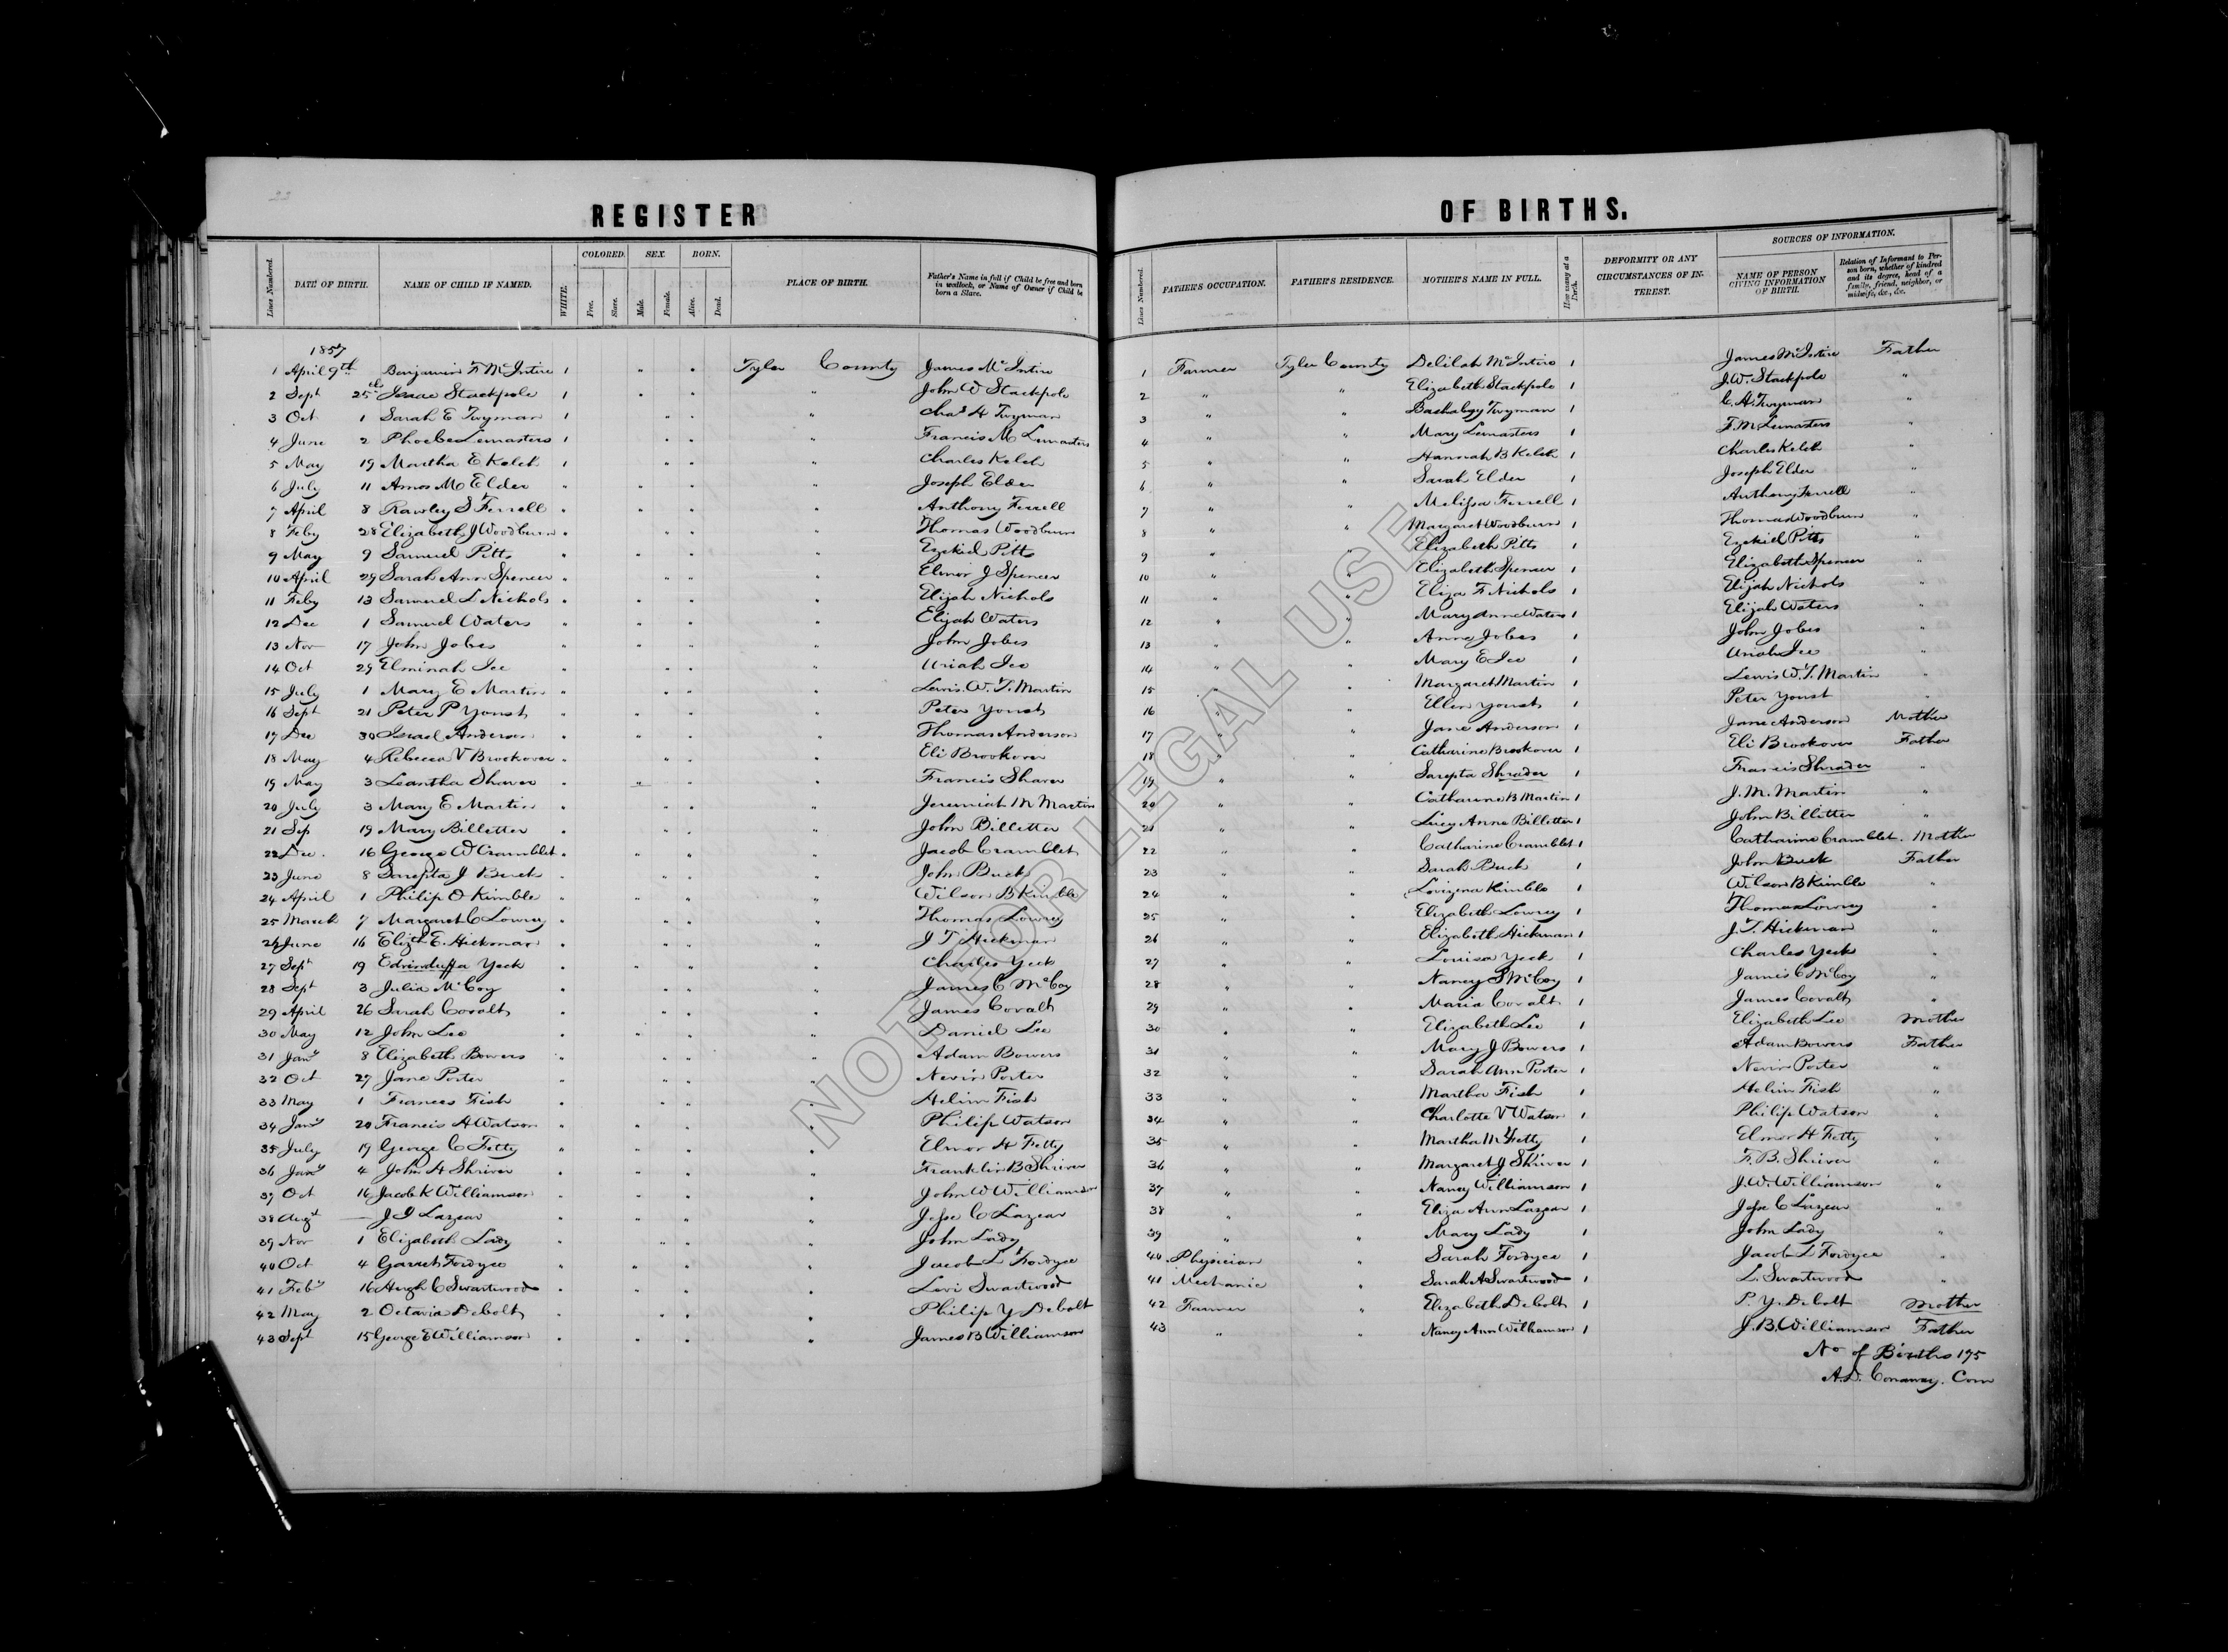 22
REGISTER OF BIRTHS.
Lines Numbered. DATE OF BIRTH. NAME OF CHILD IF NAMED. WHITE. COLORED. Free. Slave. SEX. Male. Female. BORN. Alive. Dead. PLACE OF BIRTH. Father's Name in full if Child be free and born in wedlock, or Name of Owner if Child be born a Slave. Lines Numbered. FATHER'S OCCUPATION. FATHER'S RESIDENCE. MOTHER'S NAME IN FULL. How many at a Birth. DEFORMITY OR ANY CIRCUMSTANCES OF INTEREST. SOURCES OF INFORMATION. NAME OF PERSON GIVING INFORMATION OF BIRTH. Relation of Informant to Person born, whether of kindred and its degree, head of a family, friend, neighbor, or midwife, &c., &c.
1857
1 April 9th Benjamin F McIntire 1 " " Tyler County James McIntire 1 Farmer Tyler County Delilah McIntire 1 James McIntire Father
2 Sept 25 Isaac Stackpole 1 " " " John W Stackpole 2 " " Elizabeth Stackpole 1 J.W. Stackpole "
3 Oct 1 Sarah E Twyman 1 " " " Chas H Twyman 3 " " Twyman 1 C. H. Twyman "
4 June 2 Phoebe Lemasters 1 " " " Francis M Lemasters 4 " " Mary Lemasters 1 F. M Lemasters "
5 May 19 Martha E Kelch 1 " " " Charles Kelch 5 " " Hannah B Kelch 1 Charles Kelch "
6 July 11 Amos M Elder " " " " Joseph Elder 6 " " Sarah Elder 1 Joseph Elder "
7 April 8 Rawley S Ferrell " " " " Anthony Ferrell 7 " " Melissa Ferrell 1 Anthony Ferrell "
8 Feby 28 Elizabeth J Woodburn " " " " Thomas Woodburn 8 " " Margaret Woodburn 1 Thomas Woodburn "
9 May 9 Samuel Pitts " " " " Ezekiel Pitts 9 " " Elizabeth Pitts 1 Ezekiel Pitts "
10 April 29 Sarah Ann Spencer " " " " Elmor J Spencer 10 " " Elizabeth Spencer 1 Elizabeth Spencer "
11 Feby 13 Samuel L Nichols " " " " Elijah Nichols 11 " " Eliza F Nichols 1 Elijah Nichols "
12 Dec 1 Samuel Waters " " " " Elijah Waters 12 " " Mary Anne Waters 1 Elijah Waters "
13 Nov 17 John Jobes " " " " John Jobes 13 " " Anny Jobes 1 John Jobes "
14 Oct 29 Elminah Ice " " " " Uriah Ice 14 " " Mary E Ice 1 Uriah Ice "
15 July 1 Mary E Martin " " " " Lewis. W. T. Martin 15 " " Margaret Martin 1 Lewis W. T. Martin "
16 Sept 21 Peter P Youst " " " " Peter Youst 16 " " Ellen Youst 1 Peter Youst "
17 Dec 30 Israel Anderson " " " " Thomas Anderson 17 " " Jane Anderson 1 Jane Anderson Mother
18 May 4 Rebecca V Brookover " " " " Eli Brookover 18 " " Catharine Brookover 1 Eli Brookover Father
19 May 3 Leantha Sharer " " " " Francis Sharer 19 " " Sarepta Shrader 1 Francis Shrader "
20 July 3 Mary E Martin " " " " Jeremiah M Martin 20 " " Catharine B Martin 1 J. M. Martin "
21 Sep 19 Mary Billetter " " " " John Billetter 21 " " Lucy Anne Billetter 1 John Billetter "
22 Dec. 16 George W Cramblet " " " " Jacob Cramblet 22 " " Catharine Cramblet 1 Catharine Cramblet. Mother
23 June 8 Sarepta J Buck " " " " John Buck 23 " " Sarah Buck 1 John Buck Father
24 April 1 Philip O Kimble " " " " Wilson B Kimble 24 " " Lovizena Kimble 1 Wilson B Kimble "
25 March 7 Margaret C Lowry " " " " Thomas Lowry 25 " " Elizabeth Lowry 1 Thomas Lowry "
26 June 16 Elizth E. Hickman " " " " J T Hickman 26 " " Elizabeth Hickman 1 J. T. Hickman "
27 Sept 19 Yeck " " " " Charles Yeck 27 " " Louisa Yeck 1 Charles Yeck "
28 Sept 3 Julia McCoy " " " " James C McCoy 28 " " Nancy S McCoy 1 James C McCoy "
29 April 26 Sarah Covalt " " " " James Covalt 29 " " Maria Covalt 1 James Covalt "
30 May 12 John Lee " " " " Daniel Lee 30 " " Elizabeth Lee 1 Elizabeth Lee Mother
31 Jany 8 Elizabeth Bowers " " " " Adam Bowers 31 " " Mary J Bowers 1 Adam Bowers Father
32 Oct 27 Jane Porter " " " " Nevin Porter 32 " " Sarah Ann Porter 1 Nevin Porter "
33 May 1 Frances Fish " " " " Helim Fish 33 " " Martha Fish 1 Helim Fish "
34 Jany 20 Francis H Watson " " " " Philip Watson 34 " " Charlotte V Watson 1 Philip Watson "
35 July 19 George C Fetty " " " " Elmor H Fetty 35 " " Martha M Fetty 1 Elmor H Fetty "
36 Jany 4 John H Shriver " " " " Franklin B Shriver 36 " " Margaret J Shriver 1 F. B. Shriver "
37 Oct 16 Jacob K Williamson " " " " John W Williamson 37 " " Nancy Williamson 1 J. W. Williamson "
38 Augt — J I Lazear " " " " Jesse C Lazear 38 " " Eliza Ann Lazear 1 Jesse C Lazear "
39 Nov 1 Elizabeth Lady " " " " John Lady 39 " " Mary Lady 1 John Lady "
40 Oct 4 Garret Fordyce " " " " Jacob L Fordyce 40 Physician " Sarah Fordyce 1 Jacob L Fordyce "
41 Feby 16 Hugh C Swartwood " " " " Levi Swartwood 41 Mechanic " Sarah A Swartwood 1 L. Swartwood "
42 May 2 Octavia Debolt " " " " Philip Y Debolt 42 Farmer " Elizabeth Debolt 1 P. Y. Debolt Mother
43 Sept 15 George E Williamson " " " " James B Williamson 43 " " Nancy Ann Williamson 1 J. B. Williamson Father
No of Births 175
A. D. Conaway. Com
NOT FOR LEGAL USE